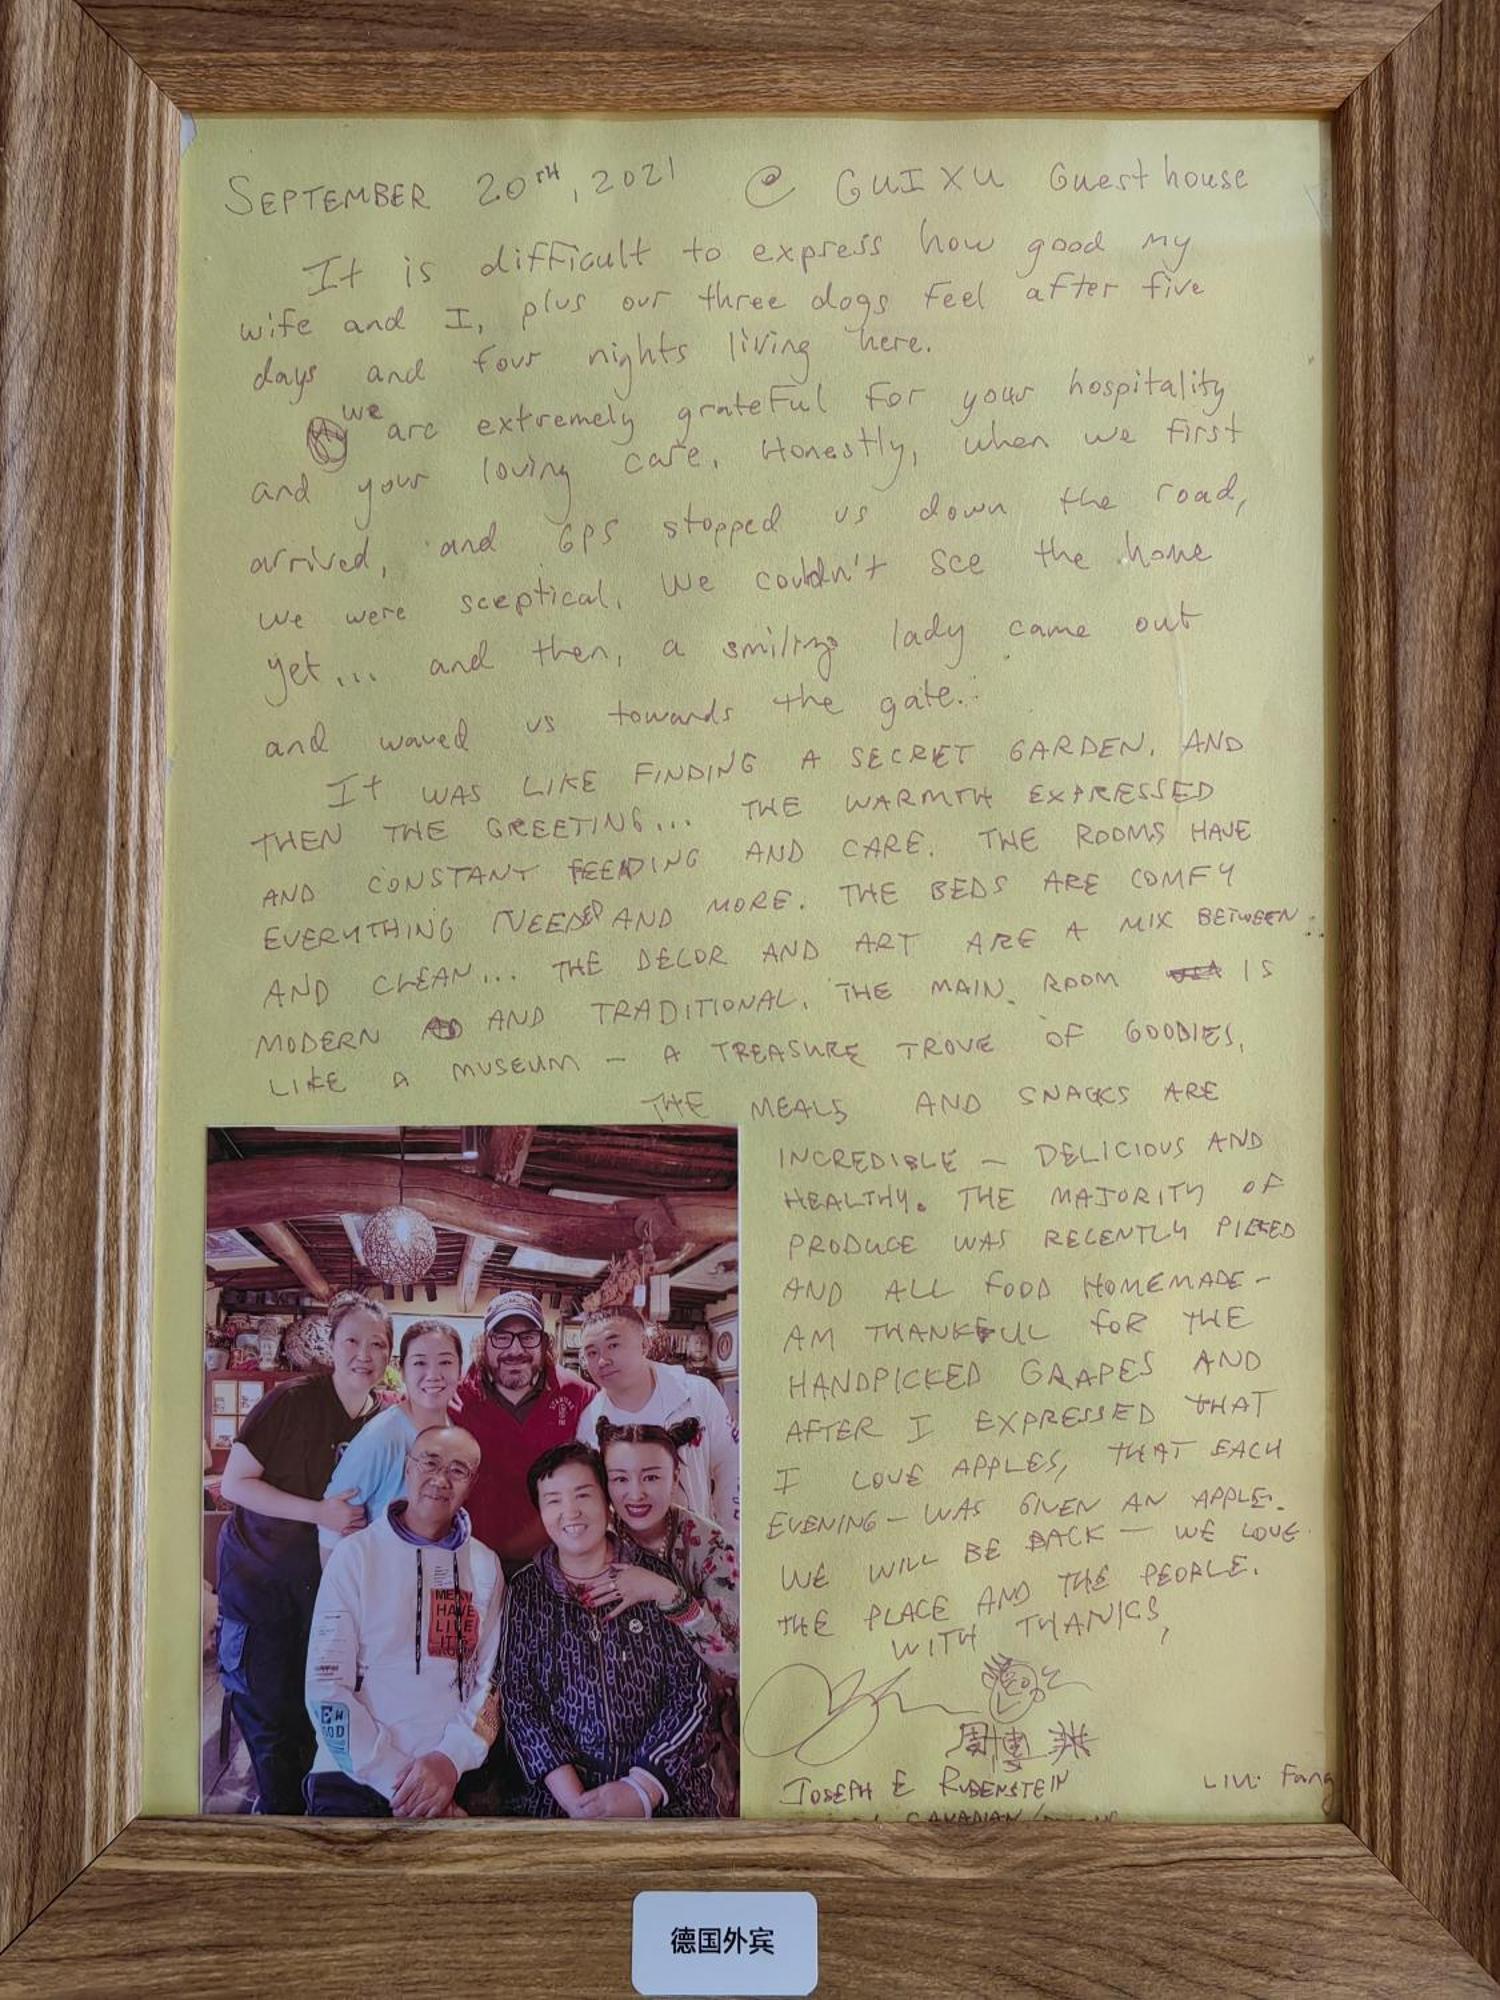 SEPTEMBER 20TH, 2021 @ GUIXU Guesthouse
It is difficult to express how good my
wife and I, plus our three dogs feel after five
days and four nights living here.
we are extremely grateful for your hospitality
and your loving care. Honestly, when we first
arrived, and GPS stopped us down the road,
we were sceptical. We couldn't see the home
yet... and then, a smiling lady came out
and waved us towards the gate..
It WAS LIKE FINDING A SECRET GARDEN. AND
THEN THE GREETING... THE WARMTH EXPRESSED
AND CONSTANT FEEDING AND CARE. THE ROOMS HAVE
EVERYTHING NEEDED AND MORE. THE BEDS ARE COMFY
AND CLEAN... THE DECOR AND ART ARE A MIX BETWEEN
MODERN AND TRADITIONAL. THE MAIN ROOM IS
LIKE A MUSEUM - A TREASURE TROVE OF GOODIES.
THE MEALS AND SNACKS ARE
INCREDIBLE - DELICIOUS AND
HEALTHY. THE MAJORITY OF
PRODUCE WAS RECENTLY PICKED
AND ALL FOOD HOMEMADE -
AM THANKFUL FOR THE
HANDPICKED GRAPES AND
AFTER I EXPRESSED THAT
I LOVE APPLES, THAT EACH
EVENING - WAS GIVEN AN APPLE.
WE WILL BE BACK - WE LOVE
THE PLACE AND THE PEOPLE.
WITH THANKS,
周博
JOSEPH E RUBENSTEIN
Fang
CANADIAN
德国外宾